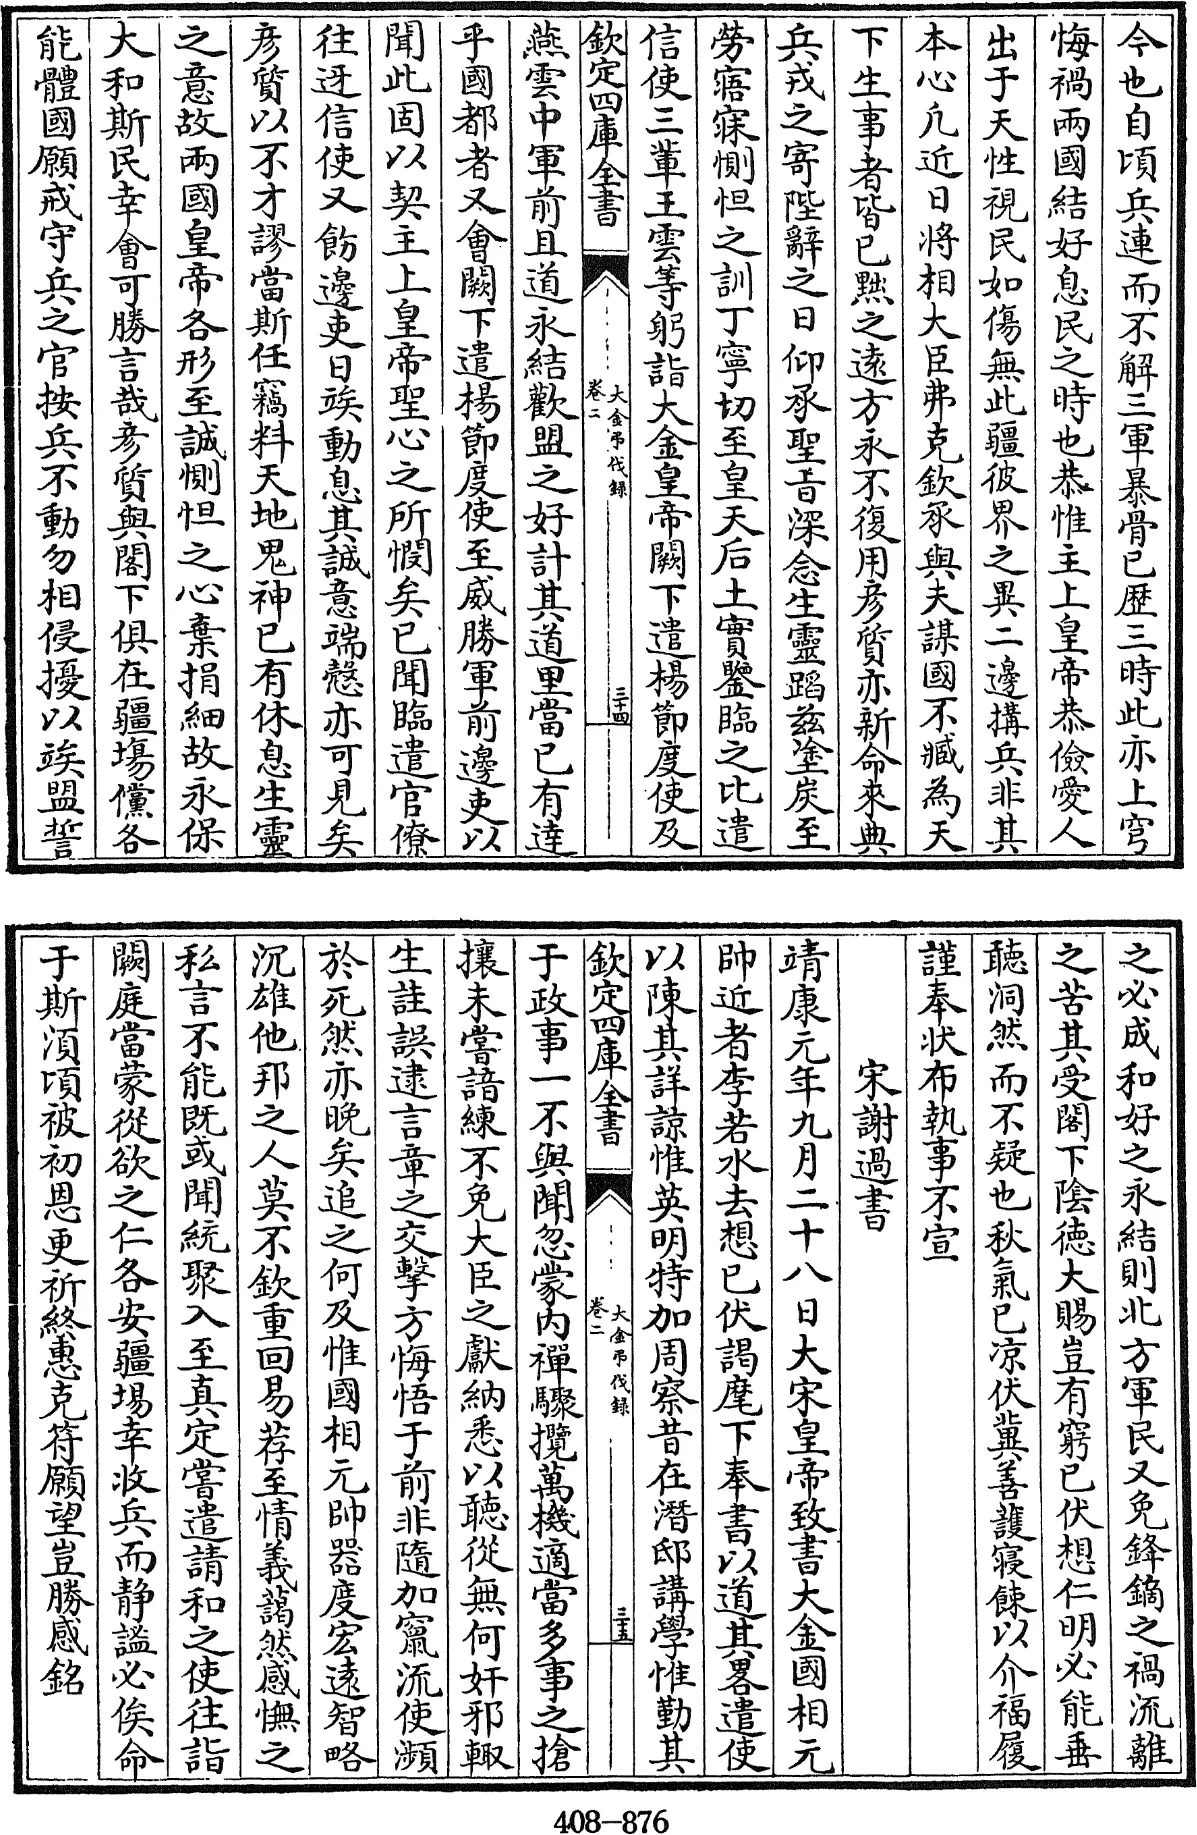 今也自頃兵連而不解三軍暴骨已歷三時此亦上穹
悔禍兩國結好息民之時也恭惟主上皇帝恭儉愛人
出于天性視民如傷無此疆彼界之異二邊搆兵非其
本心凡近日將相大臣弗克欽承與夫謀國不臧為天
下生事者皆已黜之遠方永不復用彥質亦新命來典
兵戎之寄陛辭之日仰承聖旨深念生靈蹈兹塗炭至
勞寤寐惻怛之訓丁寧切至皇天后土實鑒臨之比遣
信使三軰王雲等躬詣大金皇帝闕下遣楊節度使及
欽定四庫全書
大金弔伐録
卷二
三十四
燕雲中軍前且道永結歡盟之好計其道里當已有達
乎國都者又會闕下遣楊節度使至威勝軍前邊吏以
聞此固以契主上皇帝聖心之所憫矣已聞臨遣官僚
往迓信使又飭邊吏日竢動息其誠意端慤亦可見矣
彥質以不才謬當斯任竊料天地鬼神已有休息生靈
之意故兩國皇帝各形至誠惻怛之心棄捐細故永保
大和斯民幸會可勝言哉彥質與閣下俱在疆場儻各
能體國願戒守兵之官按兵不動勿相侵擾以竢盟誓
之必成和好之永結則北方軍民又免鋒鏑之禍流離
之苦其受閣下陰徳大賜豈有窮已伏想仁明必能垂
聽洞然而不疑也秋氣已凉伏冀善護寢餗以介福履
謹奉狀布執事不宣
宋謝過書
靖康元年九月二十八日大宋皇帝致書大金國相元
帥近者李若水去想已伏謁麾下奉書以道其畧遣使
以陳其詳諒惟英明特加周察昔在潛邸講學惟勤其
欽定四庫全書
大金弔伐録
卷二
三十五
于政事一不與聞忽蒙内禪驟攬萬機適當多事之搶
攘未嘗諳練不免大臣之獻納悉以聽從無何奸邪輙
生詿誤逮言章之交擊方悔悟于前非隨加竄流使瀕
於死然亦晚矣追之何及惟國相元帥器度宏遠智略
沉雄他邦之人莫不欽重回易荐至情義藹然感憮之
私言不能既或聞統聚入至真定嘗遣請和之使往詣
闕庭當蒙從欲之仁各安疆埸幸收兵而静謐必俟命
于斯湏頃被初恩更祈終惠克符願望豈勝感銘
408-876